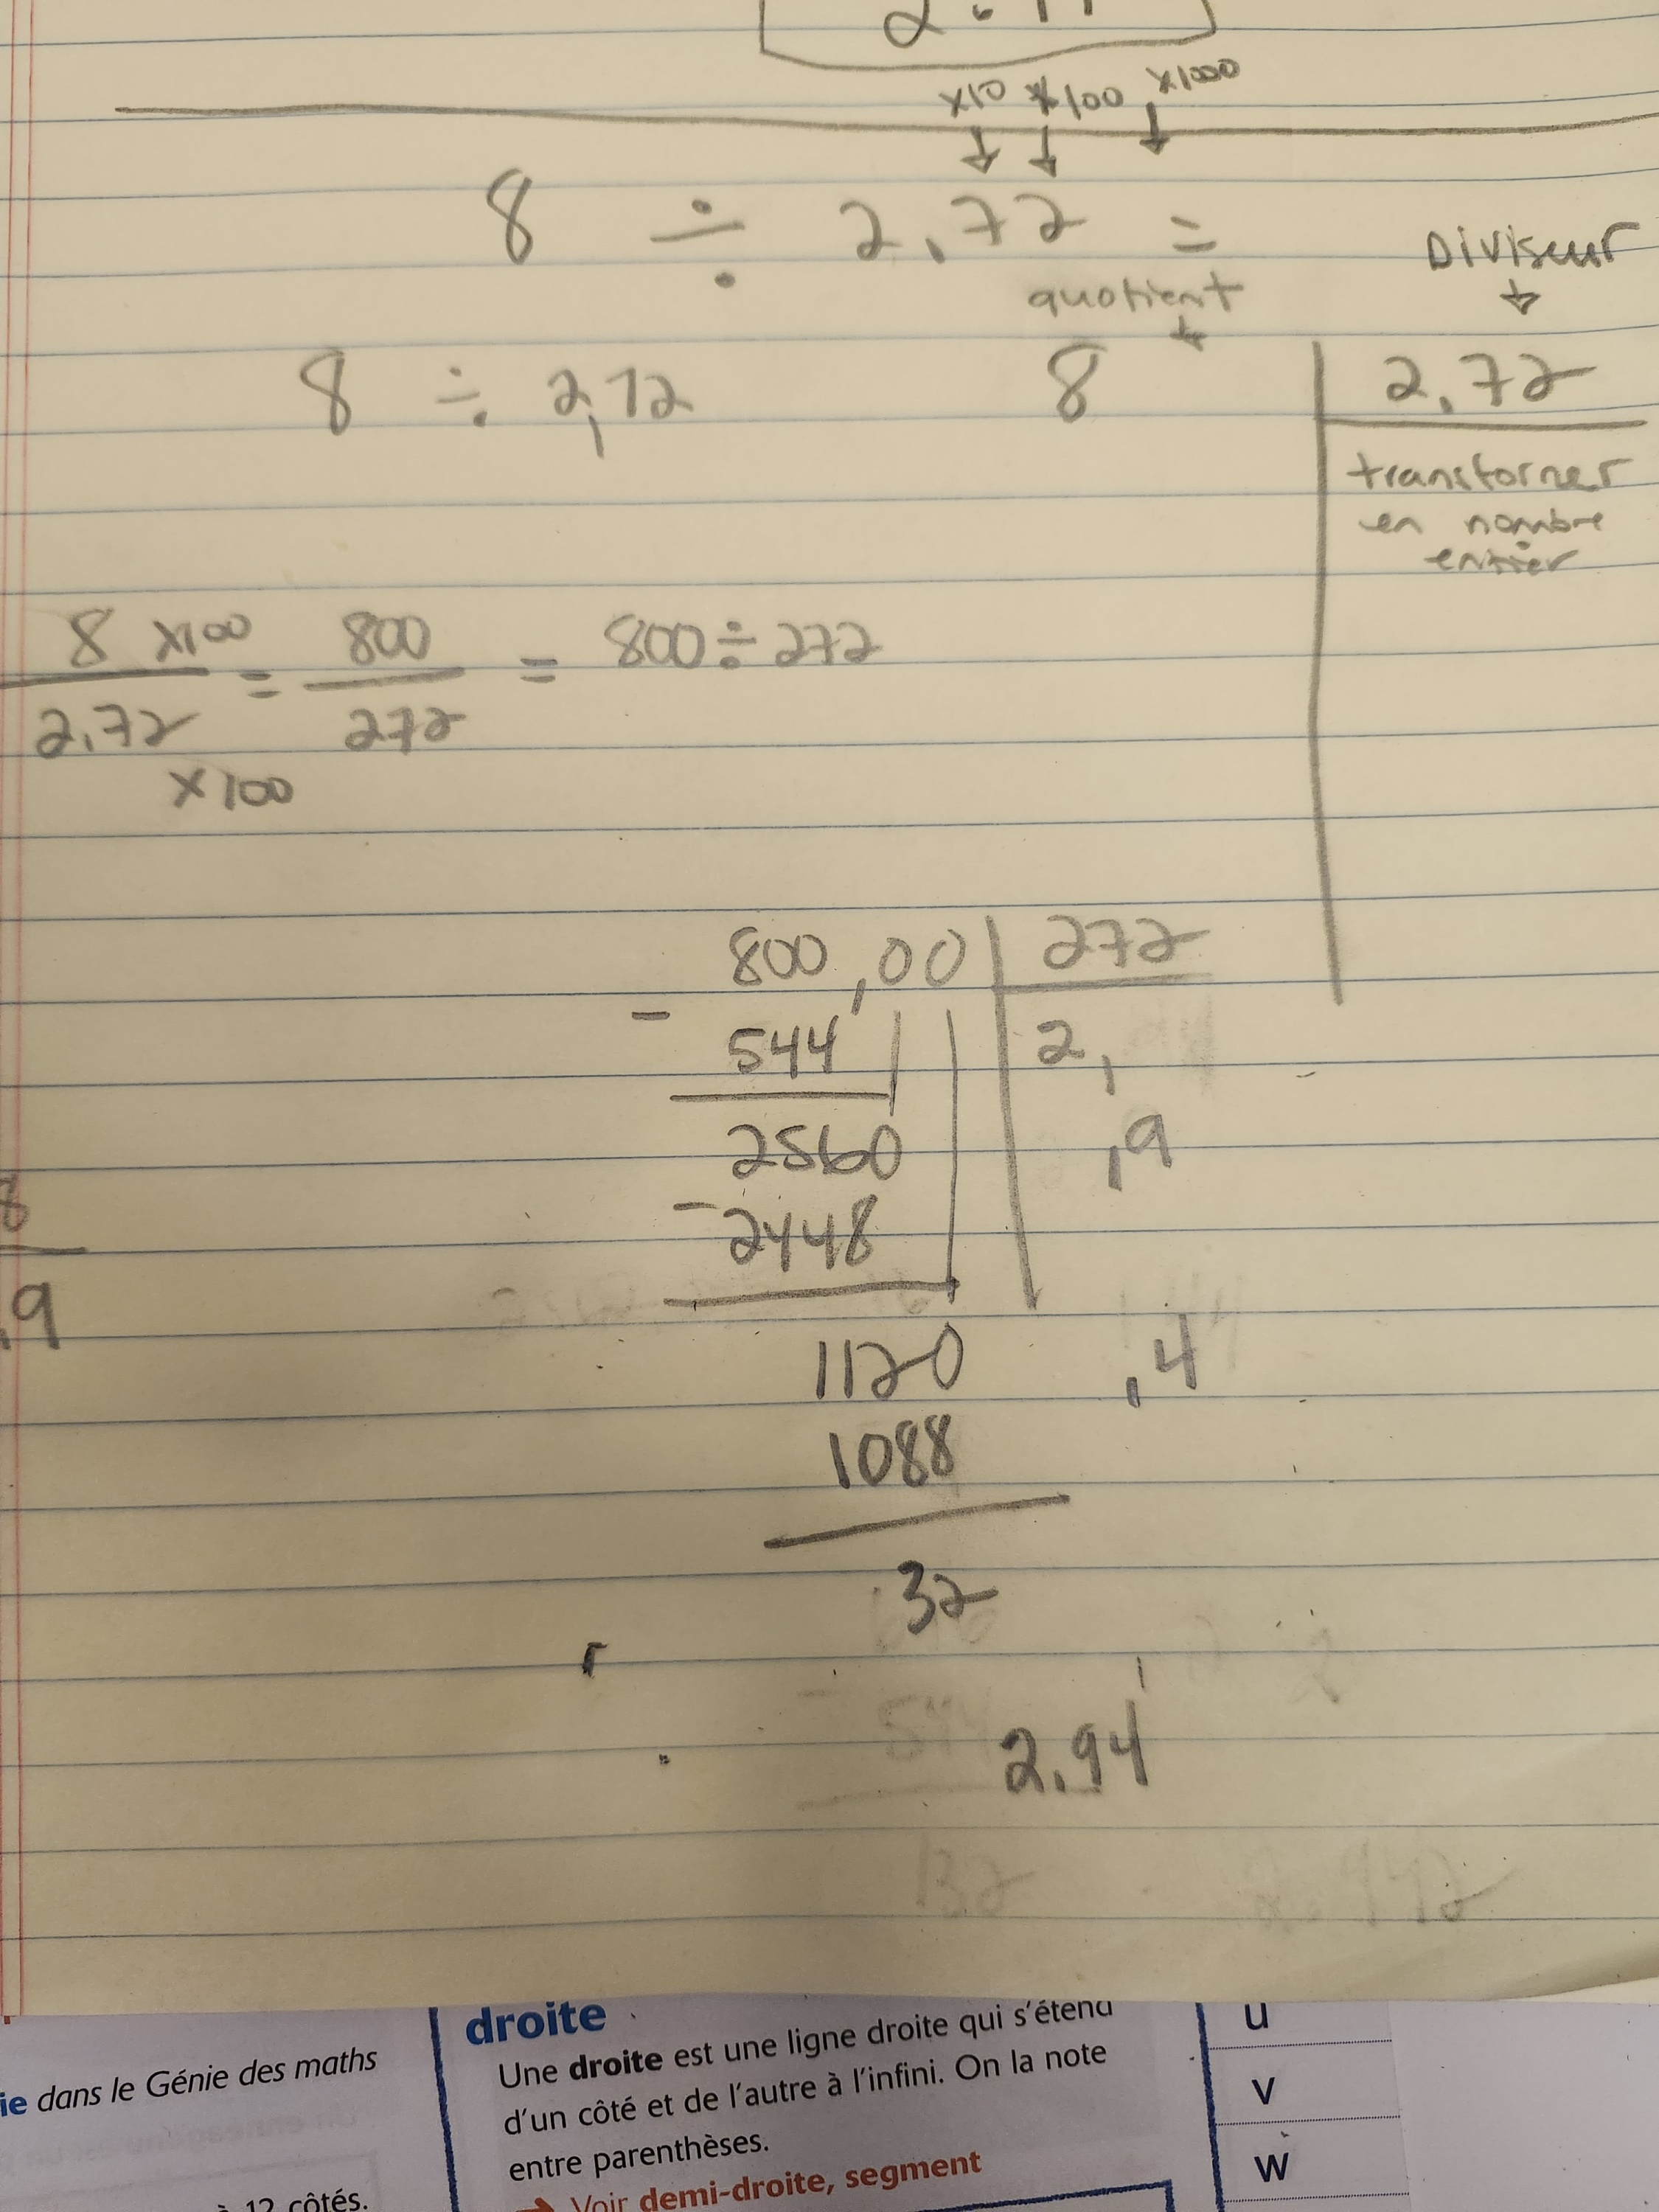 x10 x100 x1000
8 ÷ 2,72 =
Diviseur
quotient
8 ÷ 2,72
8
2,72
transformer
en nombre
entier
8 x100 = 800 = 800 ÷ 272
2,72 272
x100
800,00 272
-
544 2,
2560 ,9
-2448
8
,9
1120 ,4
1088
32
2,94
droite
Une droite est une ligne droite qui s'étend
d'un côté et de l'autre à l'infini. On la note
entre parenthèses.
Voir demi-droite, segment
ie dans le Génie des maths
12 côtés.
u
v
w